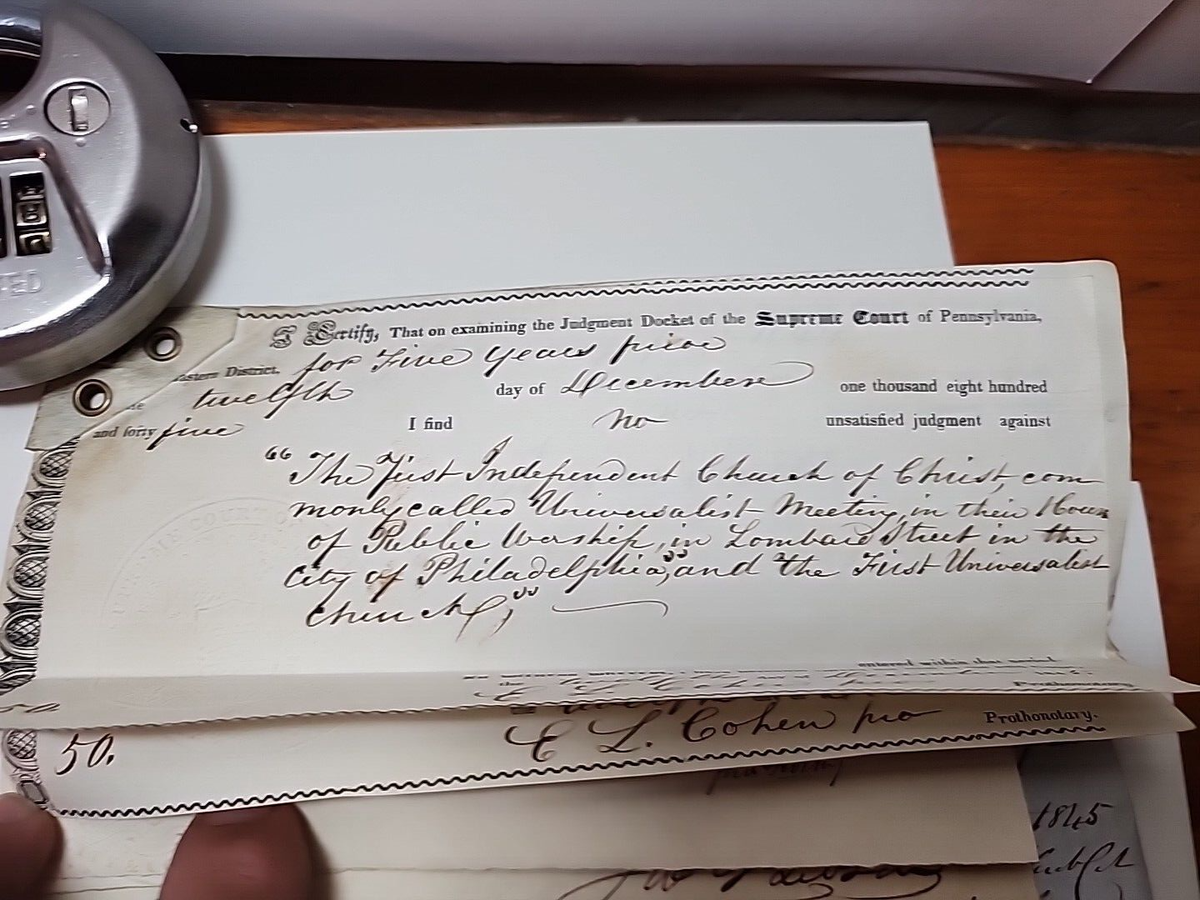 I Certify, That on examining the Judgment Docket of the Supreme Court of Pennsylvania,
astern District. for Five years prior
twelfth day of December one thousand eight hundred
and forty five I find no unsatisfied judgment against
"The First Independent Church of Christ, com
monly called Universalist Meeting, in their House
of Public Worship, in Lombard Street in the
City of Philadelphia," and "the First Universalist
Church,"
entered within that period.
Prothonotary.
50.
E L. Cohen pro Prothonotary.
1845